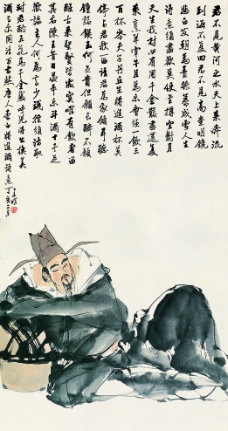 君不見黃河之水天上來奔流
到海不復回君不見高堂明鏡
悲白髮朝如青絲暮成雪人生
得意須盡歡莫使金樽空對月
天生我材必有用千金散盡還復
來烹羊宰牛且為樂會須一飲三
百杯岑夫子丹丘生將進酒杯莫
停與君歌一曲請君為我傾耳聽
鐘鼓饌玉何足貴但願長醉不願
醒古來聖賢皆寂寞惟有飲者留
其名陳王昔時宴平樂斗酒十千恣
歡謔主人何為言少錢徑須沽取
對君酌五花馬千金裘呼兒將出換美
酒與爾同銷萬古愁唐人李白將進酒詩意